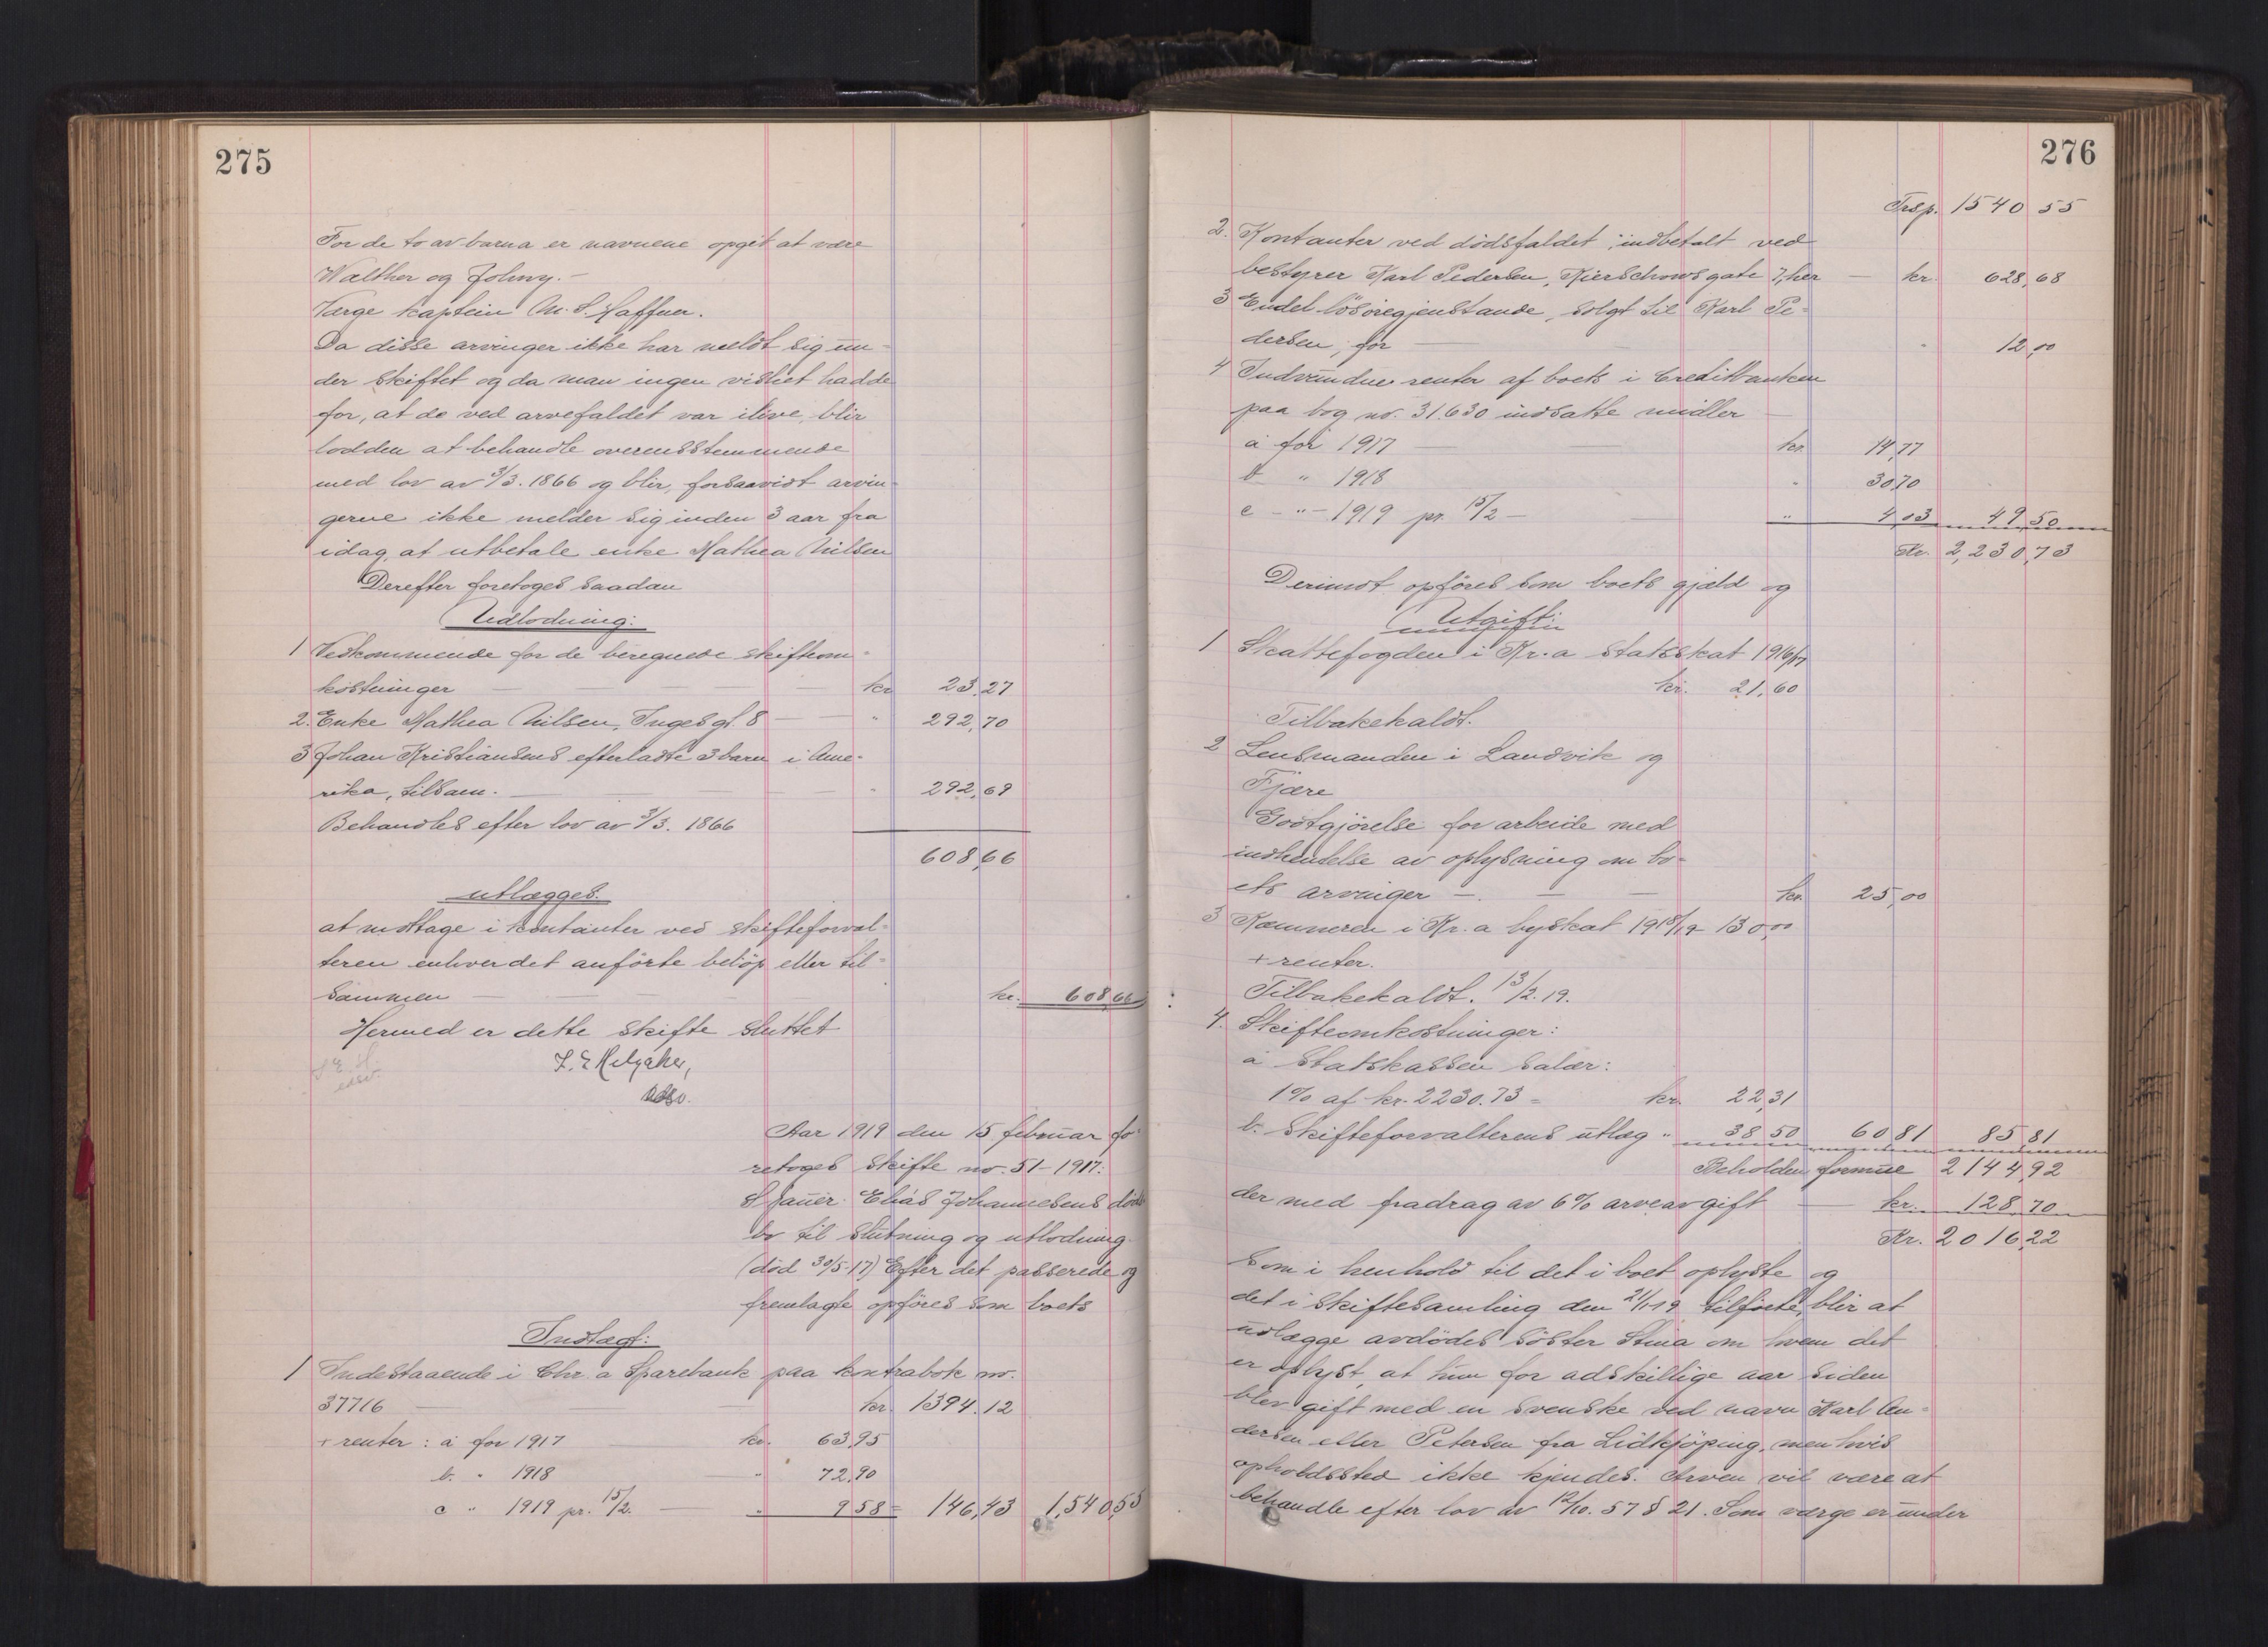 275
For de to av barna er navnene opgit at være
Walther og Johny. -
Værge kaptein M. S. Haffner.
Da disse arvinger ikke har meldt sig un-
der skiftet og da man ingen vished hadde
for, at de ved arvefaldet var ilive, blir
lodden at behandle overensstemmende
med lov av 3/3. 1866 og blir, forsaavidt arvin-
gerne ikke melder sig inden 3 aar fra
idag, at utbetale enke Mathea Nilsen
Derefter foretoges saadan
Udlodning:
1 Vedkommende for de beregnede skifteom-
kostninger kr 23,27
2. Enke Mathea Nilsen, Inges gt. 8 " 292,70
3 Johan Kristiansens efterladte 3 barn i Ame-
rika, tilsam. " 292,69
Behandles efter lov av 3/3. 1866
608,66
utlægges.
at mottage i kontanter ved skifteforval-
teren enhver det anførte beløp eller til-
sammen kr. 608,66
Hermed er dette skifte sluttet
Aar 1919 den 15 februar fo-
retoges skifte no. 51-1917:
Elias Johannesens døds
bo til slutning og utlodning
(død 30/5-17) Efter det passerede og
fremlagte opføres som boets
Indtægt:
1 Indestaaende i Chr.a Sparebank paa kontrabok no.
37716 kr. 1394.12
+ renter: a for 1917 kr. 63,95
b. " 1918 " 72,90
c " 1919 pr. 15/2. " 9 58 = 146,43 1,540,55
276
Trsp. 1540 55
2. Kontanter ved dødsfaldet indbetalt ved
bestyrer Karl Pedersen, Kierschows gate 7, her kr. 628,68
3 Endel løsøregjenstande, solgt til Karl Pe-
dersen, for " 12,00
4 Indvundne renter af boets i Creditbanken
paa bog no. 31.630 indsatte midler
a for 1917 kr. 14,77
b " 1918 " 30,70
c - " - 1919 pr. 15/2 - " 4,03 49,50
Kr. 2,230,73
Derimot opføres som boets gjæld og
Utgift:
1 Skattefogden i Kr.a statsskat 1916/17
kr. 21,60
Tilbakekaldt.
2 Lensmanden i Landvik og
Fjære
Godtgjørelse for arbeide med
indhentelse av oplysning om bo-
ets arvinger - kr. 25,00
3 Kæmneren i Kr.a byskat 1918/19 130,00
+ renter.
Tilbakekaldt. 13/2. 19.
4. Skifteomkostninger:
a Statskassen salær:
1% af kr. 2230.73 = kr. 22,31
b. Skifteforvalterens utlæg " 38 50 60 81 85,81
Beholden formue 2144,92
der med fradrag av 6% arveavgift kr. 128,70
Kr. 2016,22
som i henhold til det i boet oplyste og
det i skiftesamling den 21/1 19 tilførte, blir at
udlægge avdødes søster Stina om hvem det
er oplyst, at hun for adskillige aar siden
blev gift med en svenske ved navn Karl An-
dersen eller Petersen fra Lidkjøping, men hvis
opholdssted ikke kjendes. Arven vil være at
behandle efter lov av 12/10. 57 § 21. Som værge er under